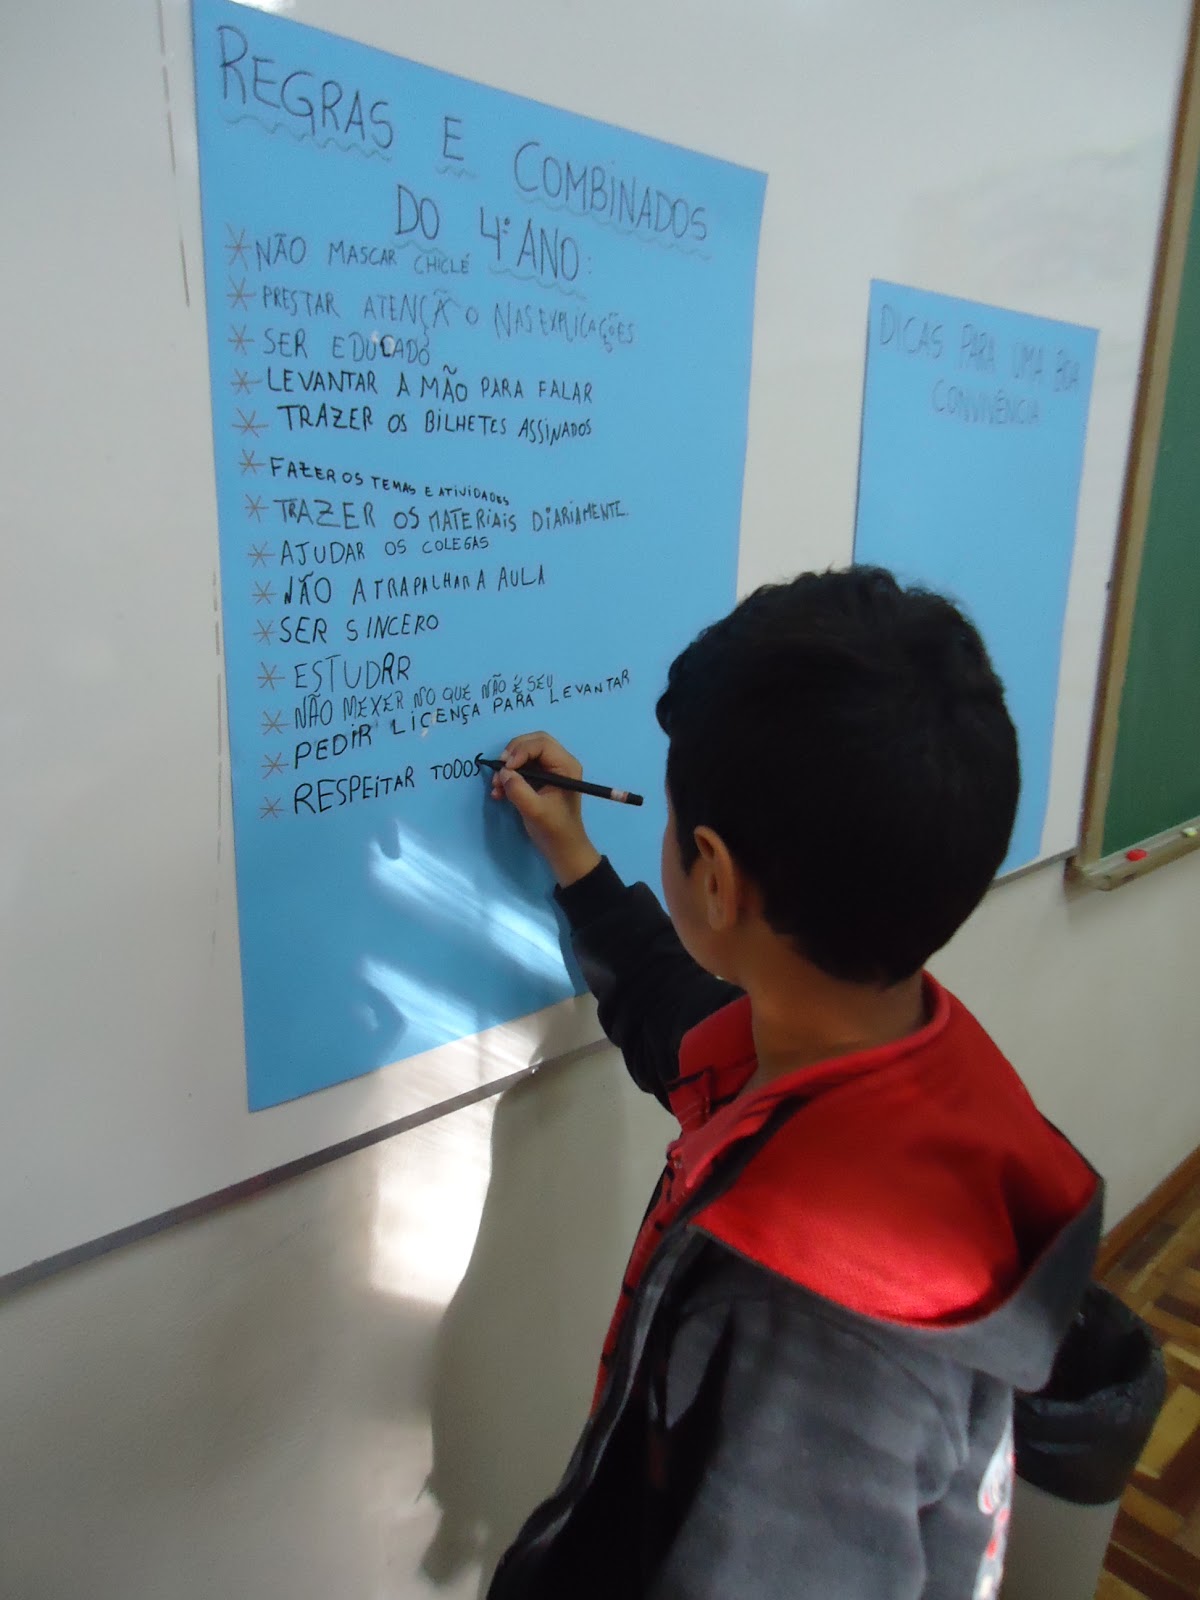 REGRAS E COMBINADOS
DO 4º ANO:
NÃO MASCAR CHICLÉ
PRESTAR ATENÇÃO NAS EXPLICAÇÕES
SER EDUCADO
LEVANTAR A MÃO PARA FALAR
TRAZER OS BILHETES ASSINADOS
FAZER OS TEMAS E ATIVIDADES
TRAZER OS MATERIAIS DIARIAMENTE.
AJUDAR OS COLEGAS
NÃO ATRAPALHAR A AULA
SER SINCERO
ESTUDAR
NÃO MEXER NO QUE NÃO É SEU
PEDIR LICENÇA PARA LEVANTAR
RESPEITAR TODOS
DICAS PARA UMA BOA
CONVIVÊNCIA